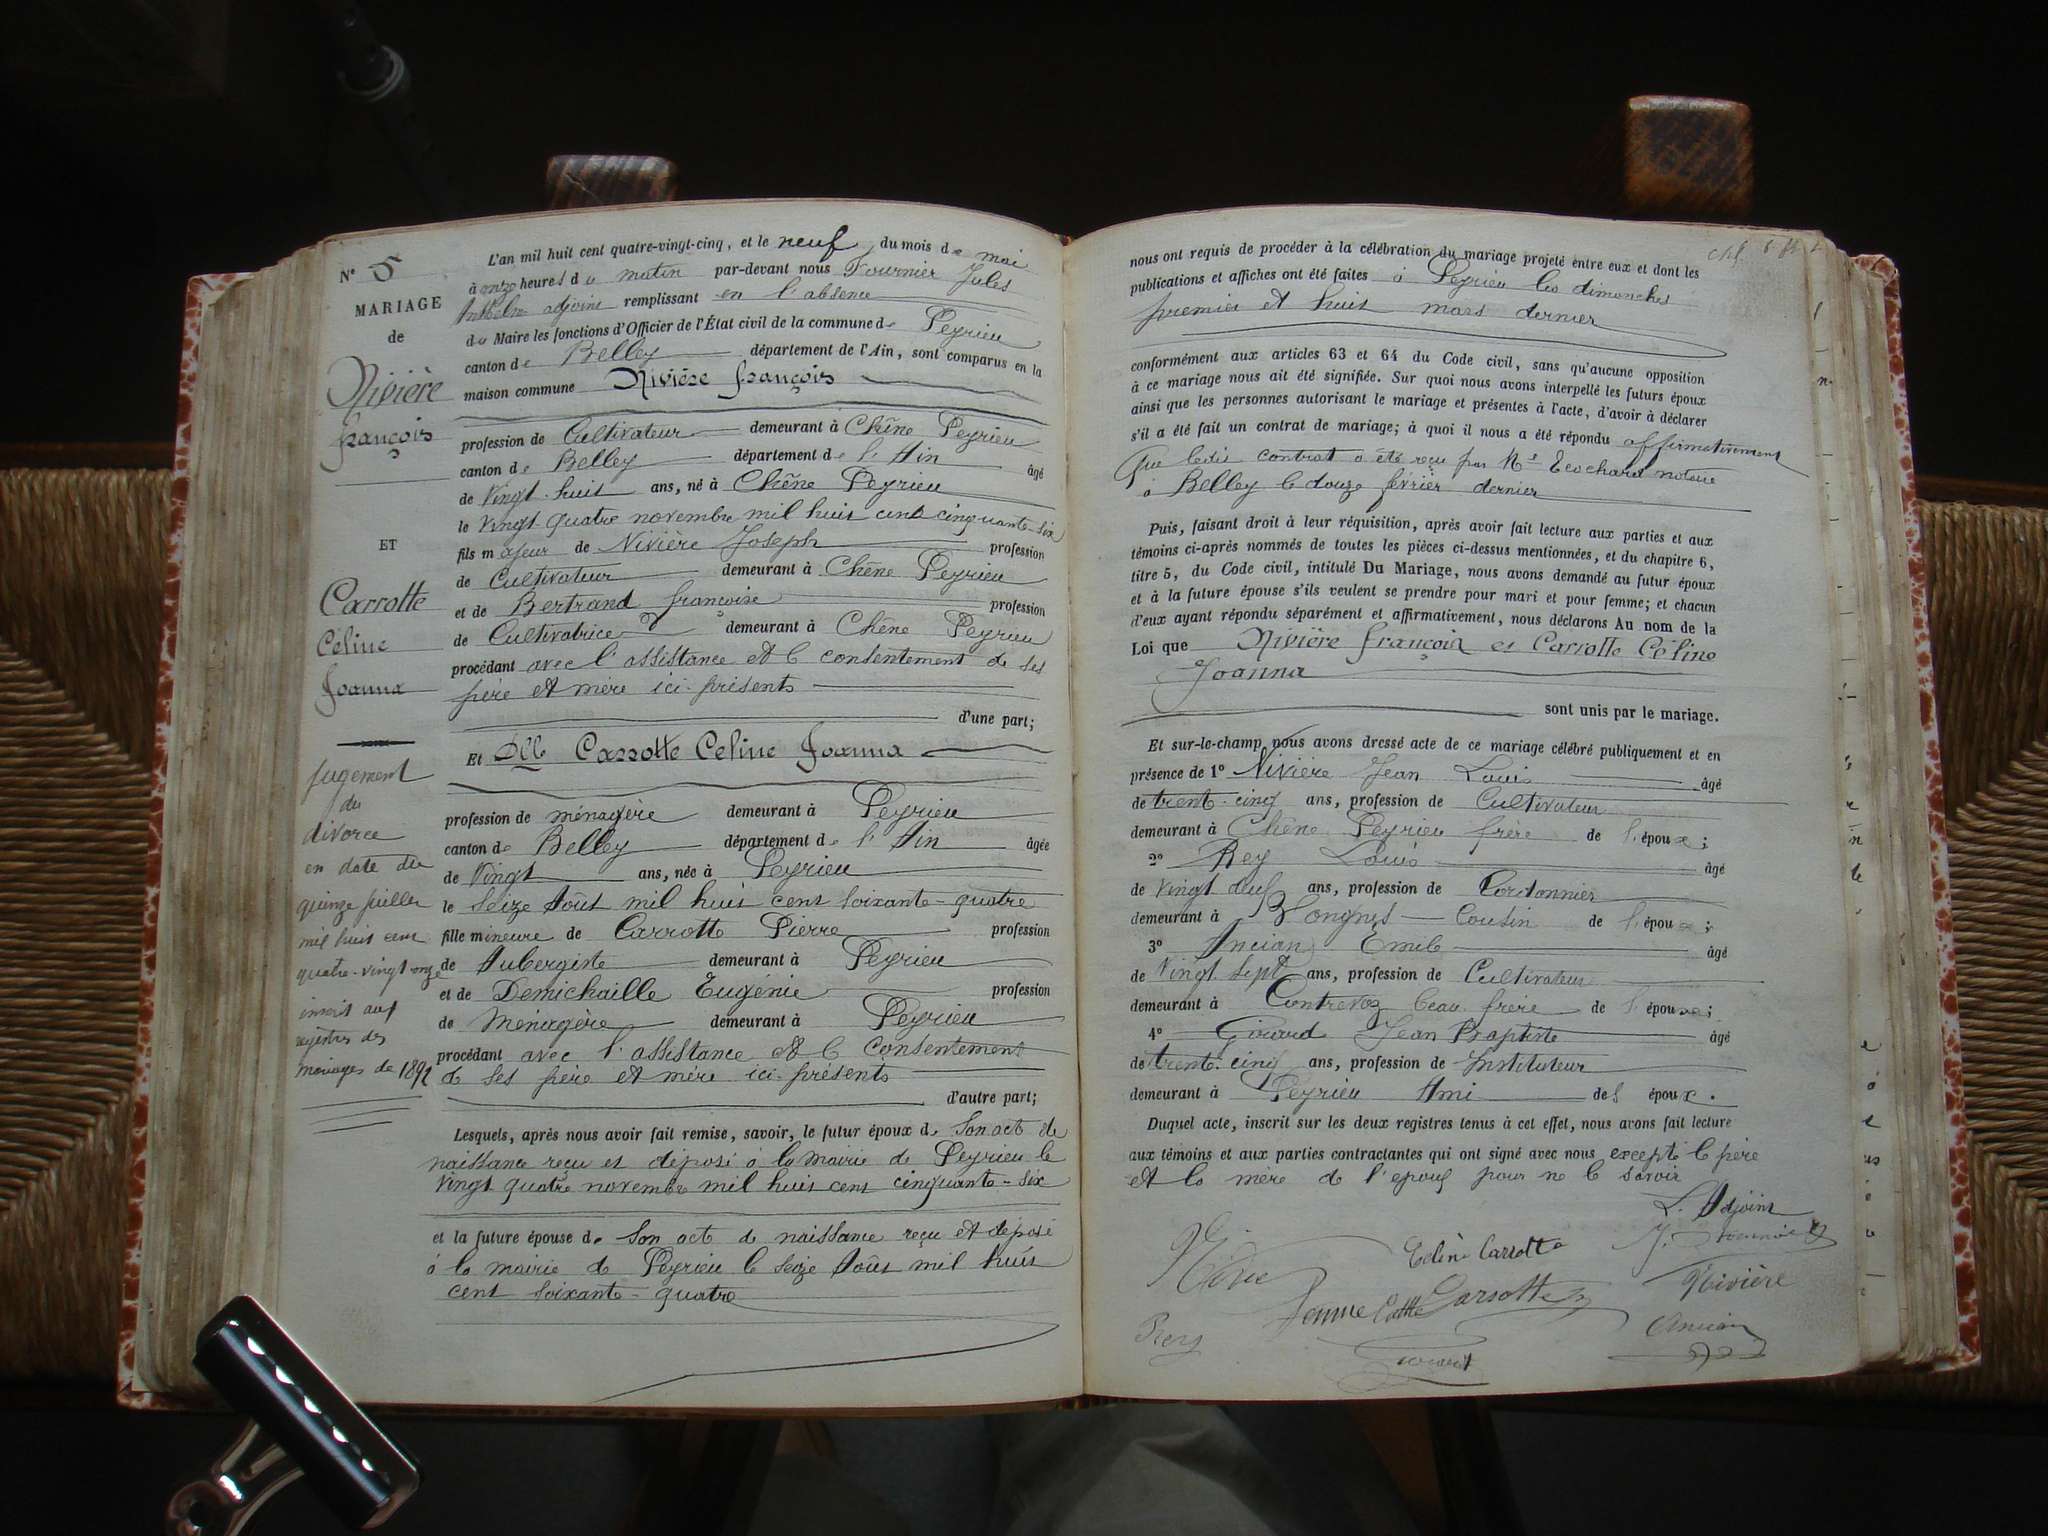 N° 5
MARIAGE
de
Nivière
François
ET
Carrotte
Céline
Joanna
Jugement
du
divorce
en date du
quinze juillet
mil huit cent
quatre-vingt-onze
inscrit aux
registres des
mariages de 1892
L'an mil huit cent quatre-vingt-cinq, et le neuf du mois de mai
à onze heures du matin par-devant nous Fournier Jules
Anthelme adjoint remplissant en l'absence
du Maire les fonctions d'Officier de l'État civil de la commune de Peyrieu
canton de Belley département de l'Ain, sont comparus en la
maison commune Nivière François
profession de Cultivateur demeurant à Chêne Peyrieu
canton de Belley département de l'Ain âgé
de vingt-huit ans, né à Chêne Peyrieu
le vingt-quatre novembre mil huit cent cinquante-six
fils majeur de Nivière Joseph profession
de Cultivateur demeurant à Chêne Peyrieu
et de Bertrand françoise profession
de Cultivatrice demeurant à Chêne Peyrieu
procédant avec l'assistance et le consentement de ses
père et mère ici présents
d'une part;
Et Dlle Carrotte Celine Joanna
profession de ménagère demeurant à Peyrieu
canton de Belley département de l'Ain âgée
de vingt ans, née à Peyrieu
le seize Août mil huit cent soixante-quatre
fille mineure de Carrotte Pierre profession
de Aubergiste demeurant à Peyrieu
et de Demichaille Eugénie profession
de Ménagère demeurant à Peyrieu
procédant avec l'assistance et le consentement
de ses père et mère ici présents
d'autre part;
Lesquels, après nous avoir fait remise, savoir, le futur époux de son acte de
naissance reçu et déposé à la mairie de Peyrieu le
vingt quatre novembre mil huit cent cinquante-six
et la future épouse de son acte de naissance reçu et déposé
à la mairie de Peyrieu le seize Août mil huit
cent soixante-quatre
nous ont requis de procéder à la célébration du mariage projeté entre eux et dont les
publications et affiches ont été faites à Peyrieu les dimanches
premier et huit mars dernier
conformément aux articles 63 et 64 du Code civil, sans qu'aucune opposition
à ce mariage nous ait été signifiée. Sur quoi nous avons interpellé les futurs époux
ainsi que les personnes autorisant le mariage et présentes à l'acte, d'avoir à déclarer
s'il a été fait un contrat de mariage; à quoi il nous a été répondu affirmativement
que ledit contrat a été reçu par Me notaire
à Belley le douze février dernier
Puis, faisant droit à leur réquisition, après avoir fait lecture aux parties et aux
témoins ci-après nommés de toutes les pièces ci-dessus mentionnées, et du chapitre 6,
titre 5, du Code civil, intitulé Du Mariage, nous avons demandé au futur époux
et à la future épouse s'ils veulent se prendre pour mari et pour femme; et chacun
d'eux ayant répondu séparément et affirmativement, nous déclarons Au nom de la
Loi que Nivière François et Carrotte Céline
Joanna
sont unis par le mariage.
Et sur-le-champ nous avons dressé acte de ce mariage célébré publiquement et en
présence de 1° Nivière Jean Louis âgé
de trente-cinq ans, profession de Cultivateur
demeurant à Chêne Peyrieu frère de l'époux;
2° Rey Louis âgé
de vingt neuf ans, profession de Cordonnier
demeurant à Cousin de l'époux;
3° Ancian Emile âgé
de vingt sept ans, profession de Cultivateur
demeurant à Contrevoz beau frère de l'époux;
4° Girard Jean Baptiste âgé
de trente-cinq ans, profession de Instituteur
demeurant à Peyrieu Ami des époux.
Duquel acte, inscrit sur les deux registres tenus à cet effet, nous avons fait lecture
aux témoins et aux parties contractantes qui ont signé avec nous excepté le père
et la mère de l'époux pour ne le savoir
L'Adjoint
Céline Carrotte
Nivière
Carrotte
Rey
Ancian
Girard